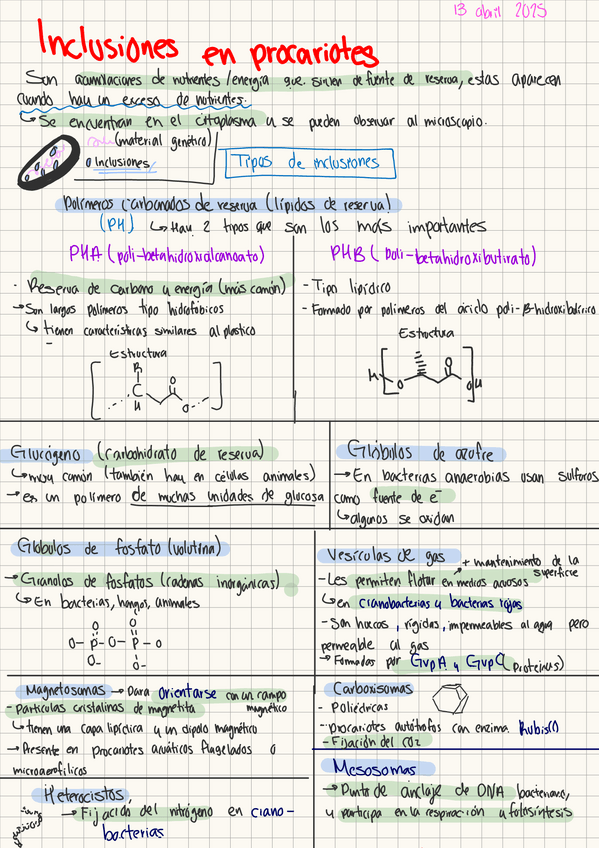 13 abril 2025
Inclusiones en procariotes
Son acumulaciones de nutrientes/energía que sirven de fuente de reserva, estas aparecen
cuando hay un exceso de nutrientes.
Se encuentran en el citoplasma y se pueden observar al microscopio.
(material genético)
Inclusiones
Tipos de inclusiones
Polímeros carbonados de reserva (lípidos de reserva)
(PH) Hay 2 tipos que son los más importantes
PHA (poli-betahidroxialcanoato)
- Reserva de carbono y energía (más común)
→ Son largos polímeros tipo hidrofóbicos
tienen características similares al plastico
Estructura
R
C
H
O
O
PHB (poli-betahidroxibutirato)
- Tipo lipídico
- Formado por polímeros del ácido poli-β-hidroxibutírico
Estructura
H
O
O
O
H
Glucógeno (carbohidrato de reserva)
muy común (también hay en células animales)
→ es un polímero de muchas unidades de glucosa
Glóbulos de azufre
→ En bacterias anaerobias usan sulfuros
como fuente de e⁻
algunos se oxidan
Glóbulos de fosfato (volutina)
→ Granulos de fosfatos (cadenas inorgánicas)
En bacterias, hongos, animales
O O
O-P-O-P-O
O- O-
Vesículas de gas
+ mantenimiento de la
superficie
- Les permiten flotar en medios acuosos
en cianobacterias y bacterias rojas
- Son huecas, rígidas, impermeables al agua pero
permeable al gas
→ Formadas por GvpA y GvpC (proteinas)
Magnetosomas → Para orientarse con un campo
magnético
- Partículas cristalinas de magnetita
tienen una capa lipídica y un dipolo magnético
→ Presente en procariotes acuáticos flagelados o
microaerofílicos
Carboxisomas
- Poliédricas
- procariotes autótrofos con enzima RubisCO
- Fijación del CO2
Heterocistos,
→ Fijación del nitrógeno en ciano-
bacterias
Mesosomas
→ Punto de anclaje de DNA bacteriano,
y participa en la respiración y fotosíntesis